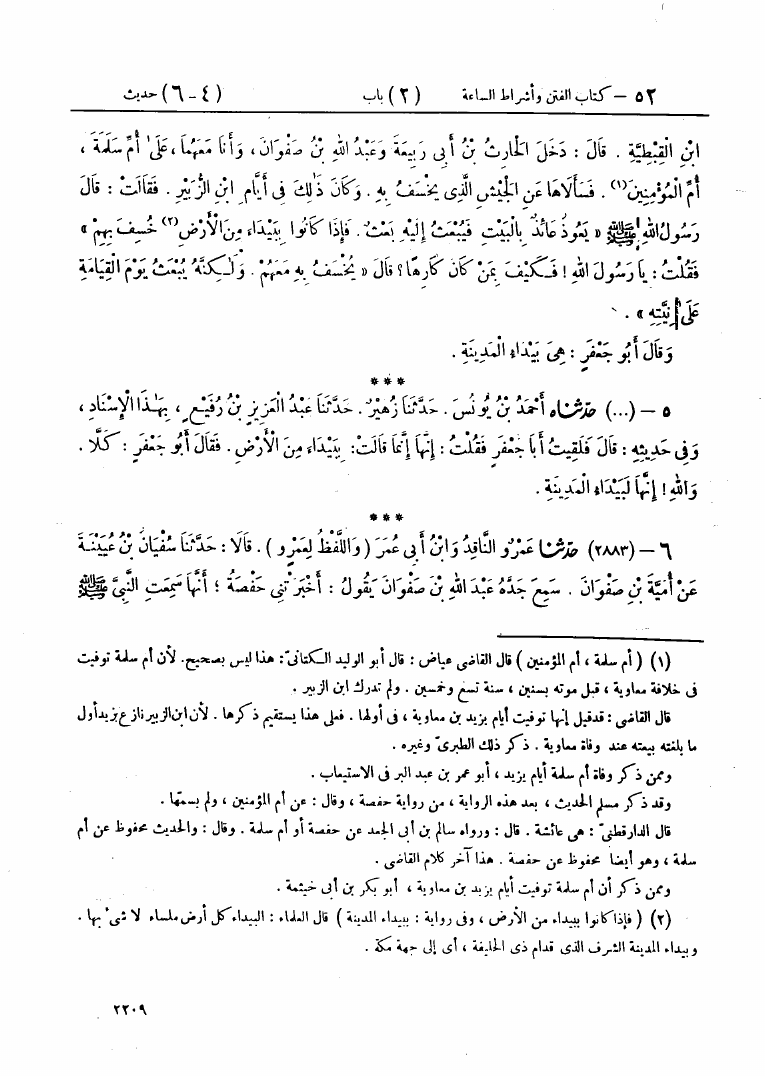 ٥٢ – كتاب الفتن وأشراط الساعة (٢) باب (٤ – ٦) حديث
ابْنِ الْقِبْطِيَّةِ . قَالَ : دَخَلَ الْحَارِثُ بْنُ أَبِي رَبِيعَةَ وَعَبْدُ اللهِ بْنُ صَفْوَانَ، وَأَنَا مَعَهُمَا، عَلَىٰ أُمِّ سَلَمَةَ ،
أُمِّ الْمُؤْمِنِينَ(١). فَسَأَلَاهَا عَنِ الْجَيْشِ الَّذِي يُخْسَفُ بِهِ. وَكَانَ ذٰلِكَ فِي أَيَّامِ ابْنِ الزُّبَيْرِ . فَقَالَتْ : قَالَ
رَسُولُ اللهِ ﷺ « يَعُوذُ عَائِذٌ بِالْبَيْتِ فَيُبْعَثُ إِلَيْهِ بَعْثٌ. فَإِذَا كَانُوا بِبَيْدَاءَ مِنَ الْأَرْضِ(٢) خُسِفَ بِهِمْ »
فَقُلْتُ : يَا رَسُولَ اللهِ ! فَكَيْفَ بِمَنْ كَانَ كَارِهًا ؟ قَالَ « يُخْسَفُ بِهِ مَعَهُمْ . وَلَـٰكِنَّهُ يُبْعَثُ يَوْمَ الْقِيَامَةِ
عَلَىٰ نِيَّتِهِ » .
وَقَالَ أَبُو جَعْفَرٍ : هِيَ بَيْدَاءُ الْمَدِينَةِ .
***
٥ – (...) حَدَّثَنَاه أَحْمَدُ بْنُ يُونُسَ . حَدَّثَنَا زُهَيْرٌ . حَدَّثَنَا عَبْدُ الْعَزِيزِ بْنُ رُفَيْعٍ ، بِهَـٰذَا الْإِسْنَادِ ،
وَفِي حَدِيثِهِ : قَالَ فَلَقِيتُ أَبَا جَعْفَرٍ فَقُلْتُ : إِنَّهَا إِنَّمَا قَالَتْ: بِبَيْدَاءَ مِنَ الْأَرْضِ. فَقَالَ أَبُو جَعْفَرٍ : كَلَّا .
وَاللهِ ! إِنَّهَا لَبَيْدَاءُ الْمَدِينَةِ .
***
٦ – (٢٨٨٣) حَدَّثَنَا عَمْرٌو النَّاقِدُ وَابْنُ أَبِي عُمَرَ ( وَاللَّفْظُ لِعَمْرٍو ) . قَالَا : حَدَّثَنَا سُفْيَانُ بْنُ عُيَيْنَةَ
عَنْ أُمَيَّةَ بْنِ صَفْوَانَ . سَمِعَ جَدَّهُ عَبْدَ اللهِ بْنَ صَفْوَانَ يَقُولُ : أَخْبَرَتْنِي حَفْصَةُ ؛ أَنَّهَا سَمِعَتِ النَّبِيَّ ﷺ
(١) ( أم سلمة ، أم المؤمنين ) قال القاضى عياض : قال أبو الوليد الكتانىّ: هذا ليس بصحيح. لأن أم سلمة توفيت
فى خلافة معاوية ، قبل موته بسنين ، سنة تسع وخمسين . ولم تدرك ابن الزبير .
قال القاضى : قد قيل إنها توفيت أيام يزيد بن معاوية ، فى أولها . فعلى هذا يستقيم ذكرها . لأن ابن الزبير نازع يزيد أول
ما بلغته بيعته عند وفاة معاوية . ذكر ذلك الطبرىّ وغيره .
وممن ذكر وفاة أم سلمة أيام يزيد ، أبو عمر بن عبد البر فى الاستيعاب .
وقد ذكر مسلم الحديث ، بعد هذه الرواية ، من رواية حفصة ، وقال : عن أم المؤمنين ، ولم يسمّها .
قال الدارقطنىّ : هى عائشة . قال : ورواه سالم بن أبى الجعد عن حفصة أو أم سلمة . وقال : والحديث محفوظ عن أم
سلمة ، وهو أيضا محفوظ عن حفصة . هذا آخر كلام القاضى .
وممن ذكر أن أم سلمة توفيت أيام يزيد بن معاوية ، أبو بكر بن أبى خيثمة .
(٢) ( فإذا كانوا ببيداء من الأرض ، وفى رواية : ببيداء المدينة ) قال العلماء : البيداء كل أرض ملساء لا شىء بها .
وبيداء المدينة الشرف الذى قدام ذى الحليفة ، أى إلى جهة مكة .
٢٢٠٩